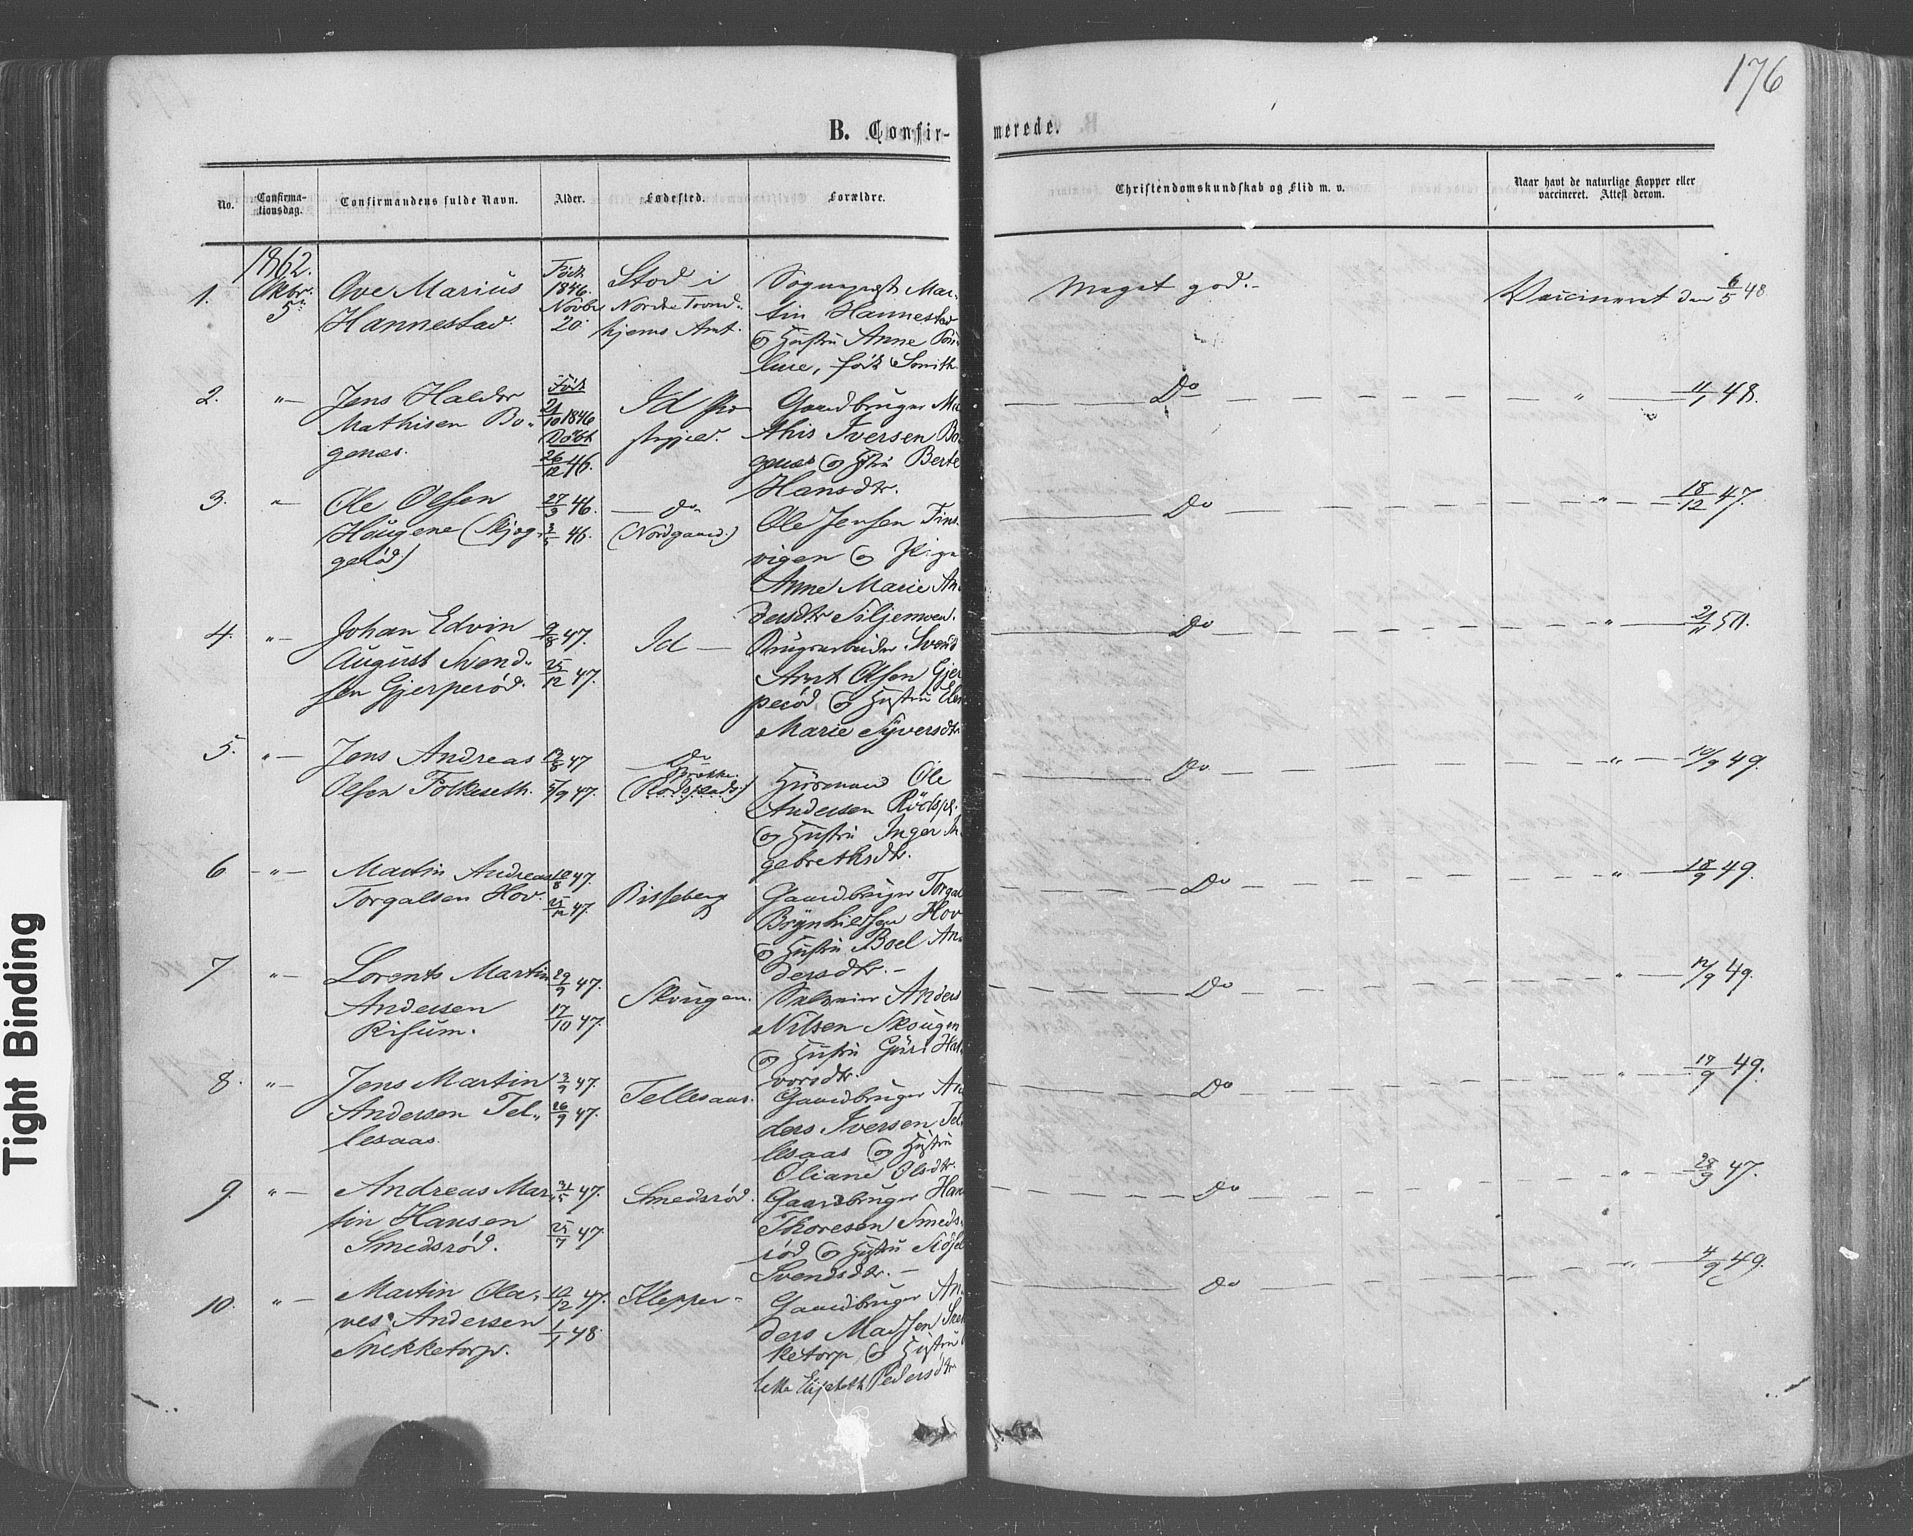 176
B. Confir-
merede.
No.
Confirma-
tionsdag.
Confirmandens fulde Navn.
Alder.
Fødested.
Forældre.
Christendomskundskab og Flid m. v.
Naar havt de naturlige Kopper eller
vaccineret. Attest derom.
1862.
1. Oktbr. 5
Ove Marius
Hannestad
Født
1846
Novbr
20
Stod i
Nordre Trond-
hjems Amt.
Sogneprest Mar-
tin Hannestad
og Hustru Anne
født Smith
Meget god.
Vaccineret den 6/5 48
2. "
Jens Haldor
Mathisen Bo-
genæs.
Født
21/10 1846
Døbt
26/12 46.
Id Præ-
stegjeld.
Gaardbruger Ma-
this Iversen Bo-
genæs og Hstru Berte
Hansdtr.
Do " 11/1 48.
3. "
Ole Olsen
Haugene (Skjeg-
gerød)
27/3 46.
3/5 46.
Do
(Nordgaard.)
Ole Jensen Tins-
vigen og Pige
Anne Marie An-
dersdtr Siljemoen.
Do " 18/12 47.
4. "
Johan Edvin
August Svend-
sen Gjerperød.
9/8 47.
25/12 47.
Id
Brugsarbeider Svend
Arnt Olsen Gjer
perød og Hustru
Marie Syversdtr
Do " 21/11 50.
5. "
Jens Andreas
Olsen Folkeseth.
13/8 47
5/9 47.
Do
Huusmand Ole
Andersen
og Hustru Inger In
gebrethsdtr.
Do " 10/9 49.
6 "
Martin Andreas
Torgalsen Hov.
18/8 47.
25/12 47.
Risseberg
Gaardbruger Torgal
Brynhildsen Hov
og Hustru Boel An-
dersdtr.
Do " 18/9 49.
7 "
Lorents Martin
Andersen
Risum.
29/9 47.
17/10 47.
Skougen.
Anders
Nilsen Skougen
og Hustru Guri Hal
vorsdtr.
Do " 12/9 49.
8. "
Jens Martin
Andersen Tel-
lesaas.
3/9 47.
26/9 47.
Tellesaas.
Gaardbruger An
ders Iversen Tel
lesaas og Hustru
Oliane Olsdtr.
Do " 17/9 49.
9. "
Andreas Mar-
tin Hansen
Smedsrød.
31/5 47.
25/7 47.
Smedsrød.
Gaardbruger Hans
Thoresen Smeds-
rød og Hustru
Svendsdtr.
Do " 28/9 47.
10. "
Martin Ola-
ves Andersen
Snekketorp.
12/12 47.
1/1 48.
Klepper
Gaardbruger An-
ders Madsen Snek
ketorp og Hustru
Elisabeth Pedersdtr
Do " 4/9 49.
Tight Binding